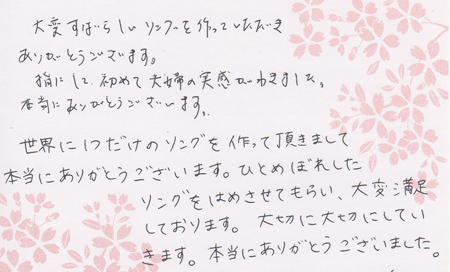 大変すばらしいリングを作っていただき
ありがとうございます。
指にして、初めて夫婦の実感がわきました。
本当にありがとうございます。
世界に1つだけのリングを作って頂きまして
本当にありがとうございます。ひとめぼれした
リングをはめさせてもらい、大変満足
しております。大切に大切にしてい
きます。本当にありがとうございました。